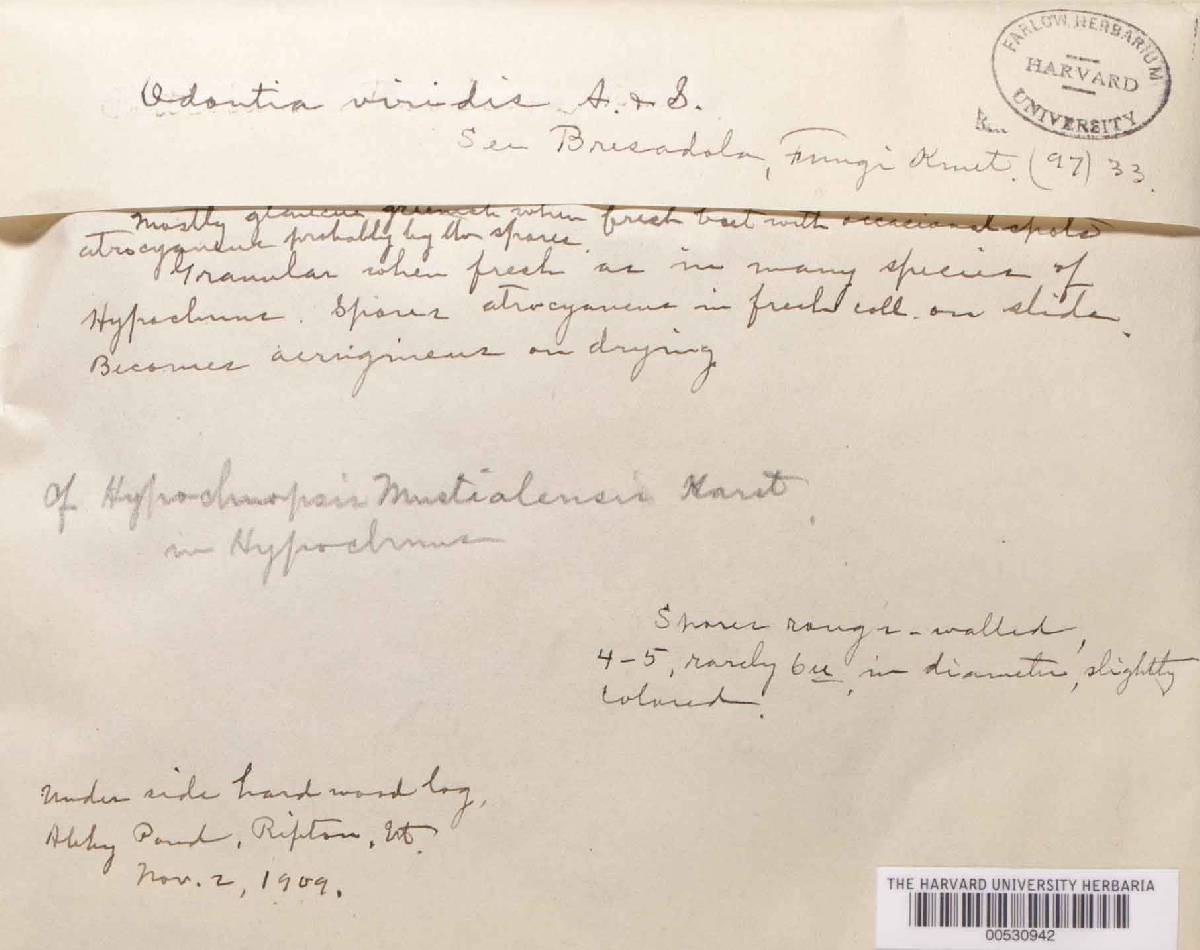 FARLOW HERBARIUM
HARVARD
UNIVERSITY
Odontia viridis A. & S.
See Bresadola, Fungi Kmet. (97) 33.
Mostly glaucus greenish when fresh but with occasional spots
atrocyaneus probably by the spores.
Granular when fresh as in many species of
Hypochnus. Spores atrocyaneus in fresh coll. on slide.
Becomes aerugineus on drying
Cf Hypochnopsis Mustialensis Karst.
in Hypochnus
Spores rough-walled,
4-5, rarely 6u, in diameter, slightly
colored.
Under side hard wood log,
Abby Pond, Ripton, Vt.
Nov. 2, 1909.
THE HARVARD UNIVERSITY HERBARIA
00530942